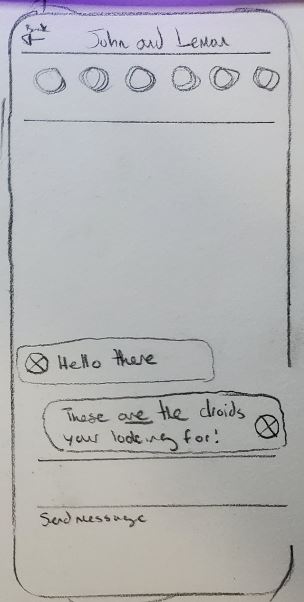 Back
John and Leman
Hello there
These are the droids
your looking for!
Send message